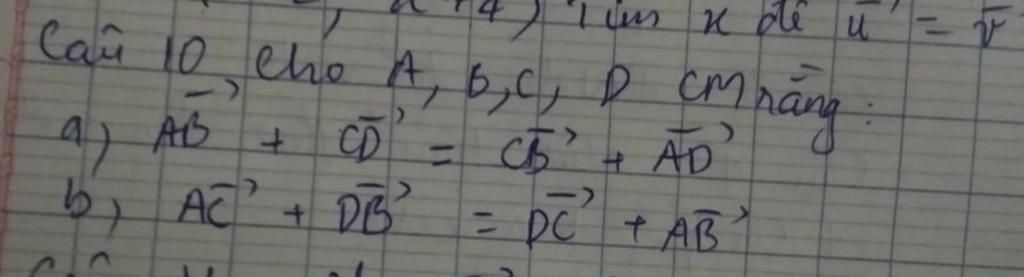 x để u⃗ = v⃗
Câu 10, Cho A, B, C, D CM rằng:
a) AB⃗ + CD⃗ = CB⃗ + AD⃗
b) AC⃗ + DB⃗ = DC⃗ + AB⃗